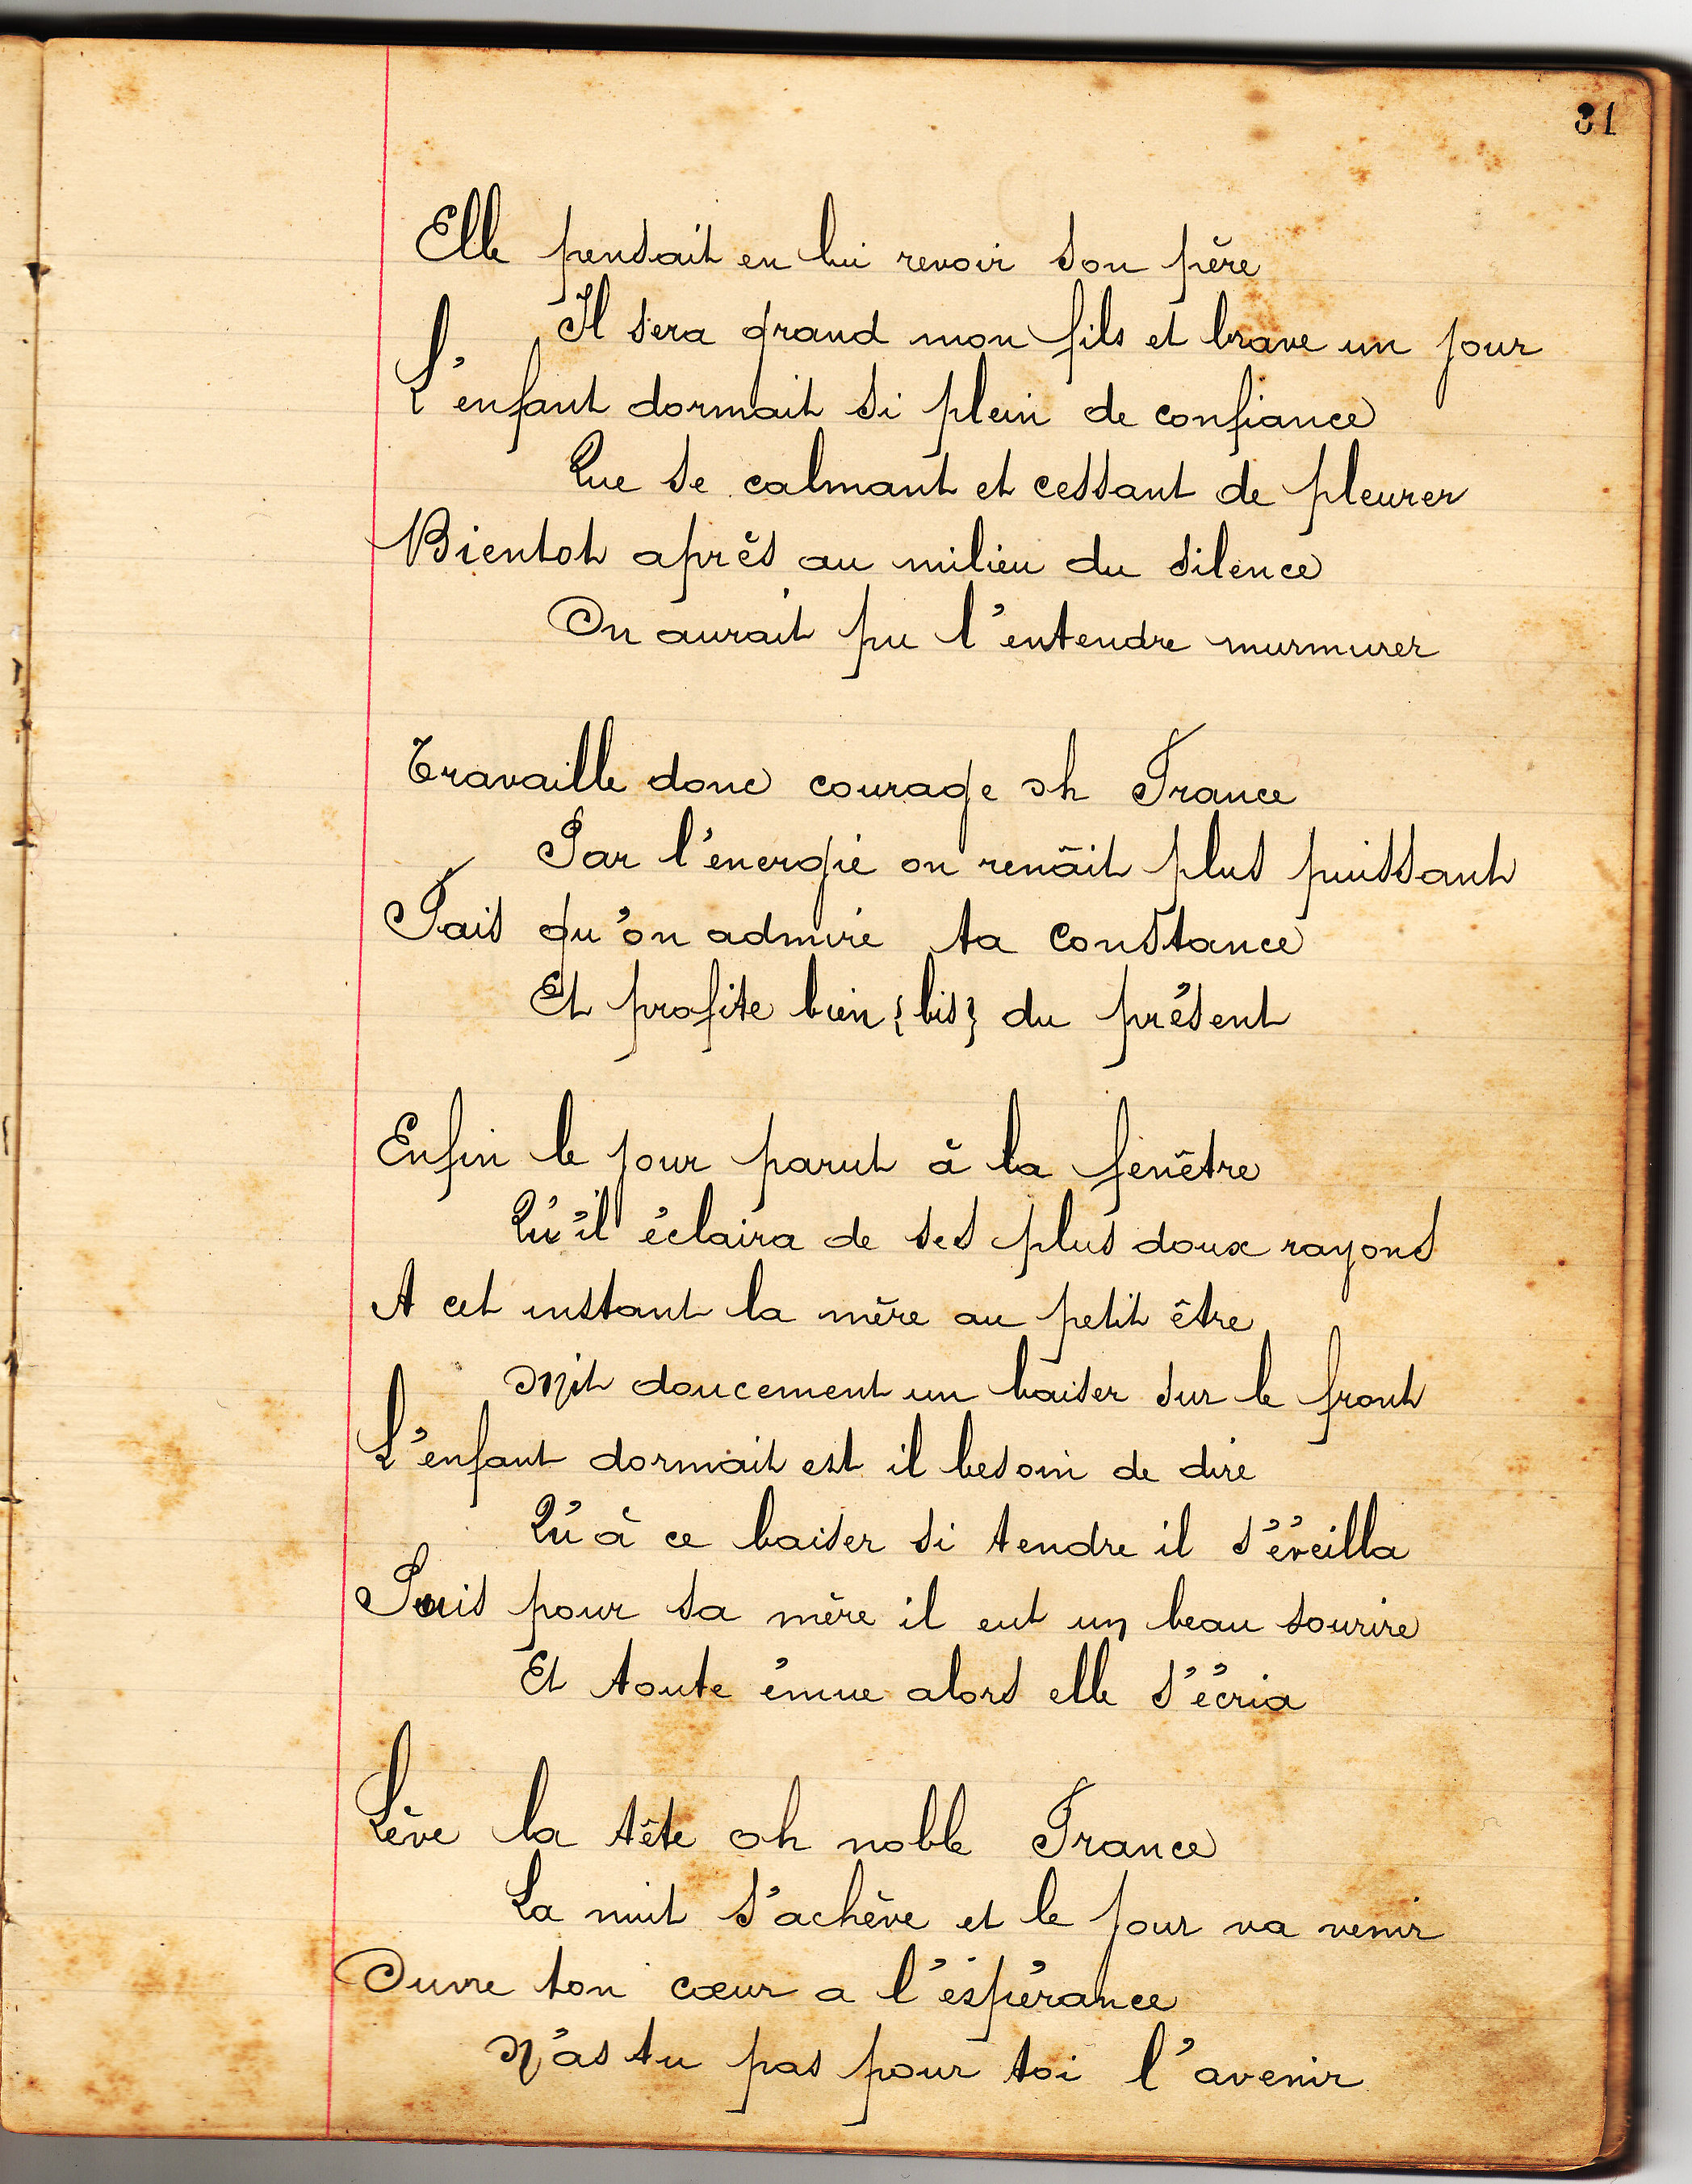 31
Elle pensait en lui revoir son père
Il sera grand mon fils et brave un jour
L'enfant dormait si plein de confiance
Que se calmant et cessant de pleurer
Bientot après au milieu du silence
On aurait pu l'entendre murmurer
Travaille donc courage oh France
Par l'énergie on renâit plus puissant
Fais qu'on admire ta constance
Et profite bien {bis} du présent
Enfin le jour parut à la fenêtre
Qu'il éclaira de ses plus doux rayons
A cet instant la mère au petit être
Mit doucement un baiser sur le front
L'enfant dormait est il besoin de dire
Qu'à ce baiser si tendre il s'éveilla
Puis pour sa mère il eut un beau sourire
Et toute émue alors elle s'écria
Lève la tête oh noble France
La nuit s'achève et le jour va venir
Ouvre ton cœur a l'éspérance
N'as tu pas pour toi l'avenir